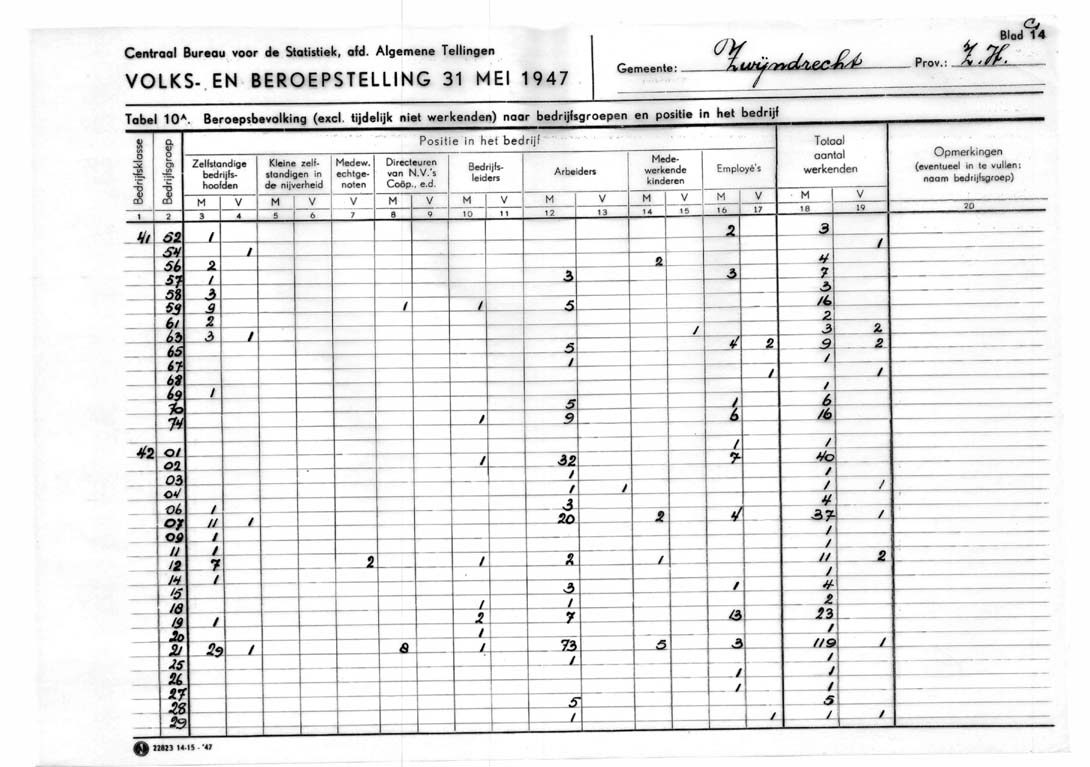 Centraal Bureau voor de Statistiek, afd. Algemene Tellingen
VOLKS- EN BEROEPSTELLING 31 MEI 1947
Gemeente: Zwijndrecht Prov.: Z.H.
Blad 14
Tabel 10A. Beroepsbevolking (excl. tijdelijk niet werkenden) naar bedrijfsgroepen en positie in het bedrijf
Bedrijfsklasse Bedrijfsgroep Positie in het bedrijf Totaal aantal werkenden Opmerkingen (eventueel in te vullen: naam bedrijfsgroep)
Zelfstandige bedrijfshoofden Kleine zelfstandigen in de nijverheid Medew. echtgenoten Directeuren van N.V.'s Coöp., e.d. Bedrijfsleiders Arbeiders Medewerkende kinderen Employé's
M V M V V M V M V M V M V M V M V
1 2 3 4 5 6 7 8 9 10 11 12 13 14 15 16 17 18 19 20
41 52 1 2 3
54 1 1
56 2 2 4
57 1 3 3 7
58 3 3
59 9 1 1 5 16
61 2 2
63 3 1 1 3 2
65 5 4 2 9 2
67 1 1
68 1 1
69 1 1
70 5 1 6
74 1 9 6 16
42 01 1 1
02 1 32 7 40
03 1 1
04 1 1 1 1
06 1 3 4
07 11 1 20 2 4 37 1
09 1 1
11 1 1
12 7 2 1 2 1 11 2
14 1 1
15 3 1 4
18 1 1 2
19 1 2 7 13 23
20 1 1
21 29 1 8 1 73 5 3 119 1
25 1 1
26 1 1
27 1 1
28 5 5
29 1 1 1 1
22823 14-15 - '47